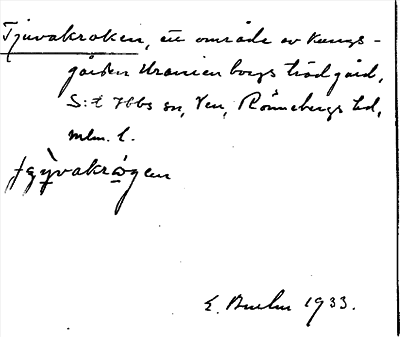 Tjuvakroken, ett område av Kungs-
gården Uranienborgs trädgård,
S:t Ibbs sn, Ven, Rönnebergs hd,
mlm. l.
E. 1933.